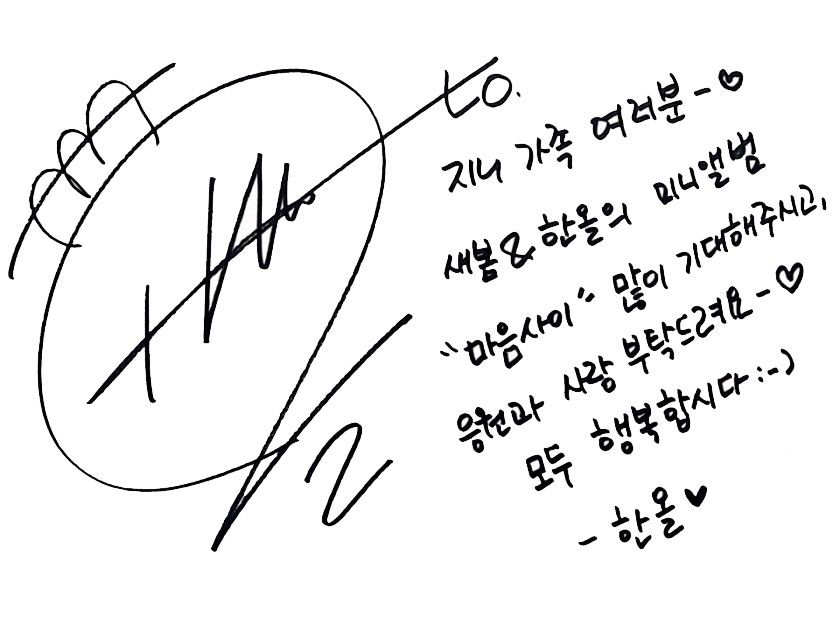 to.
지니 가족 여러분~♡
새봄&한올의 미니앨범
"마음사이" 많이 기대해주시고,
응원과 사랑 부탁드려요~♡
모두 행복합시다:-)
- 한올♥